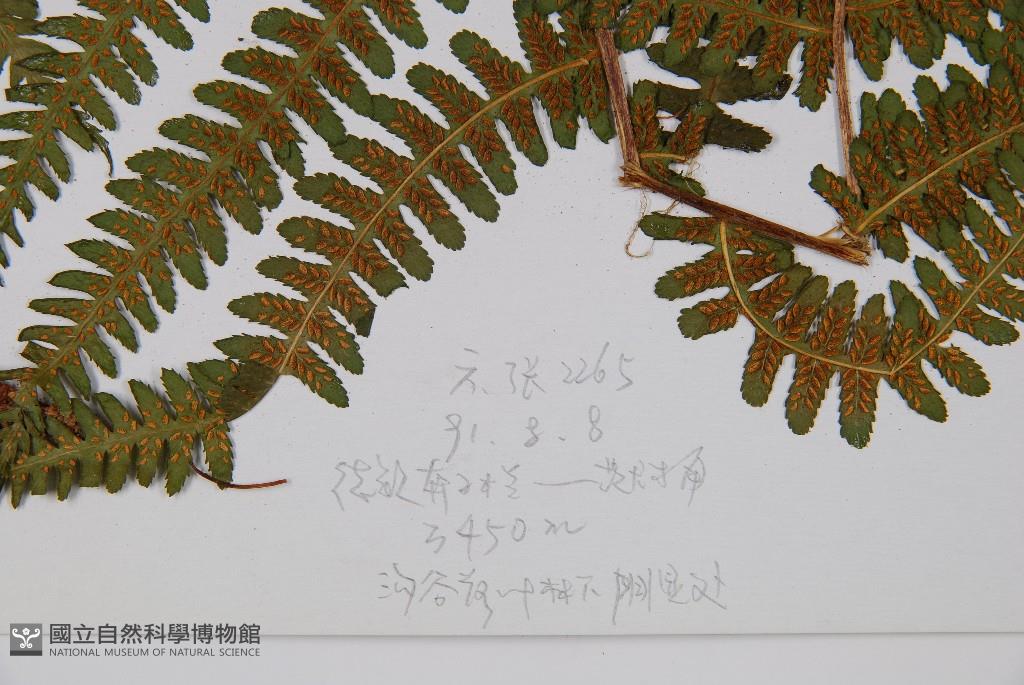 张 2265
91.8.8
德钦奔子栏——
3450m
沟谷落叶林下阴湿处
國立自然科學博物館
NATIONAL MUSEUM OF NATURAL SCIENCE